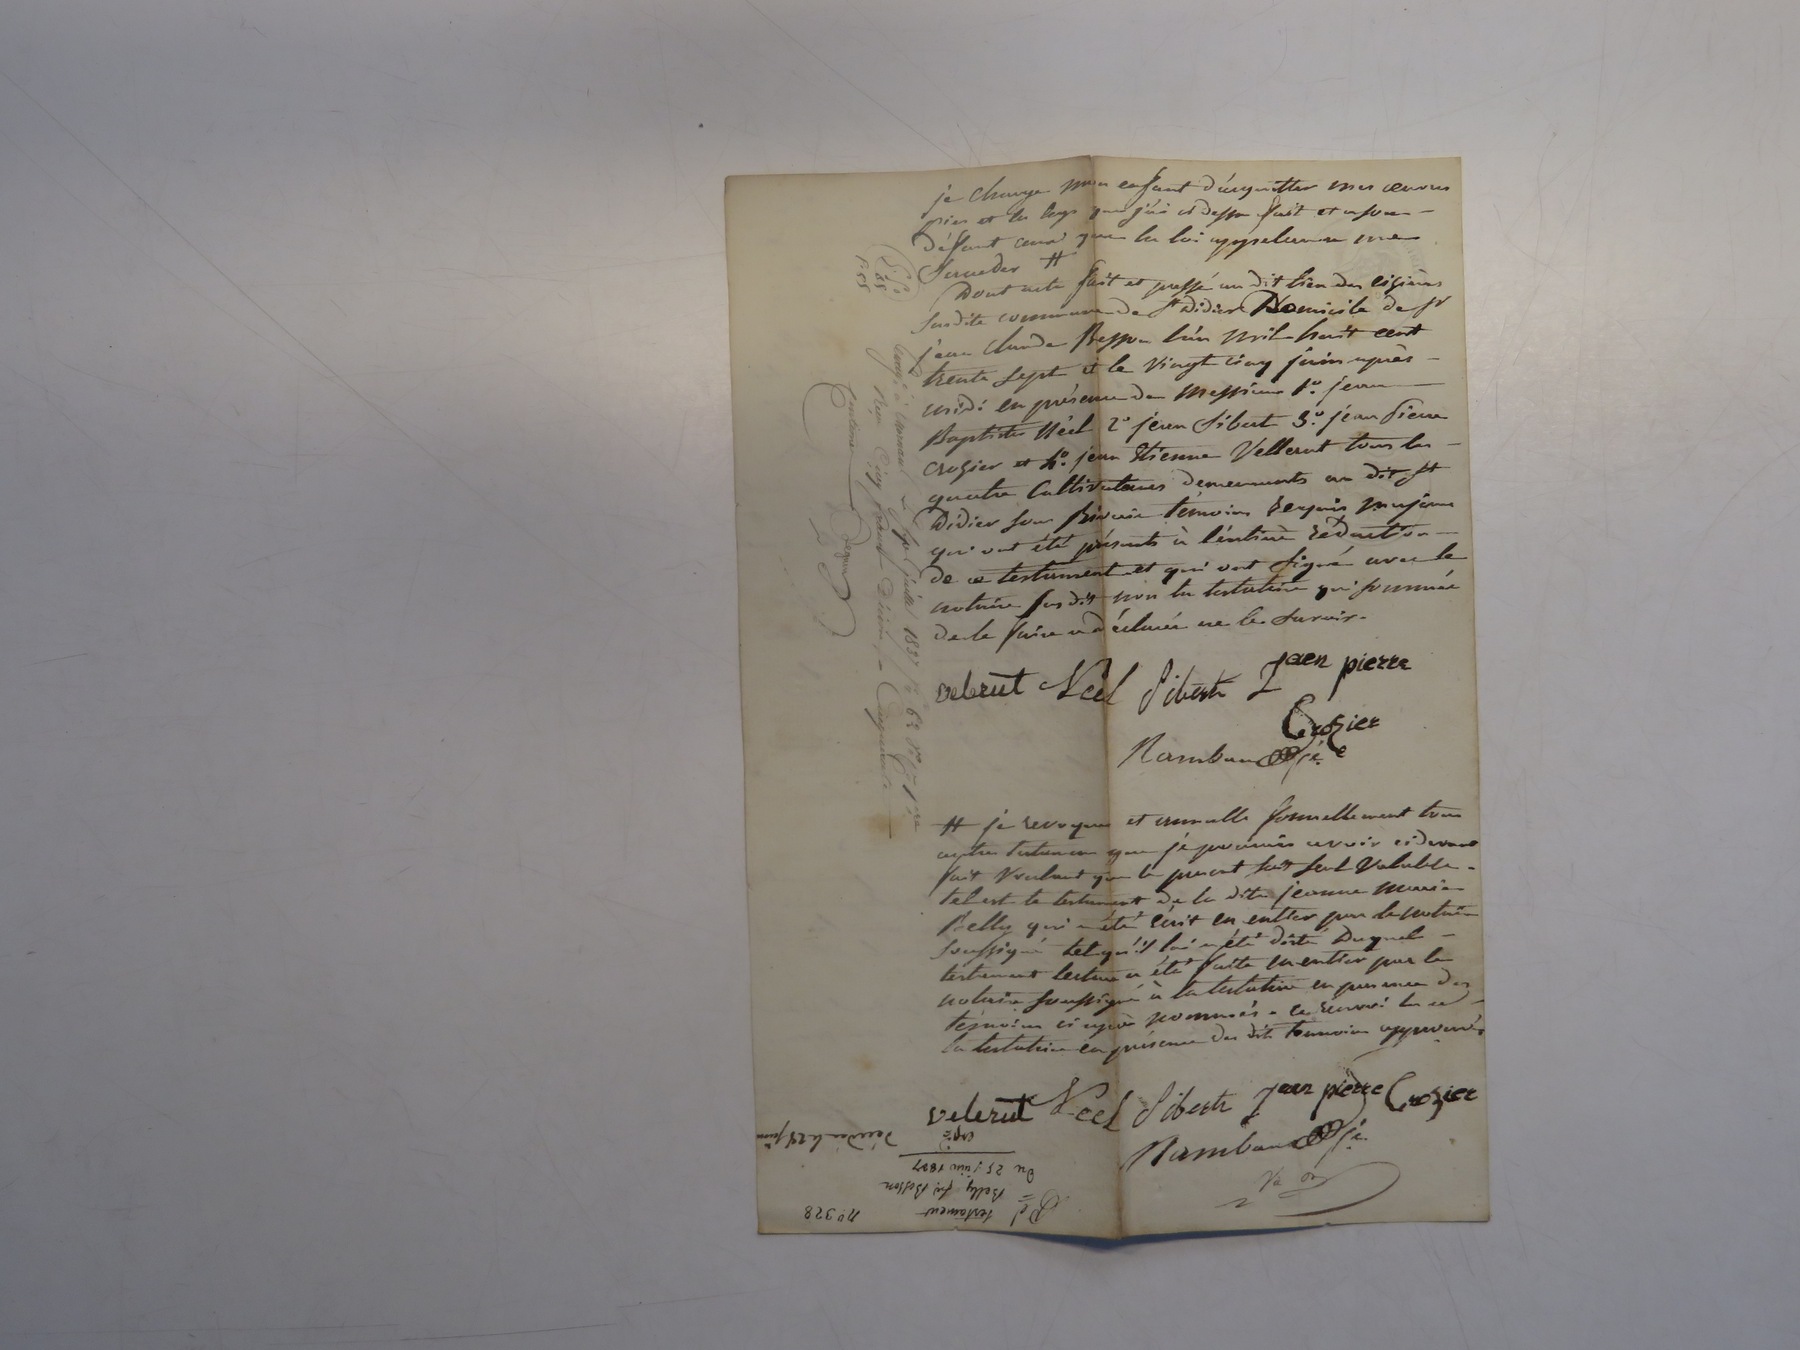 je charge mon enfant d'acquitter mes œuvres
pies et les legs que j'ai ci dessu fait et a son
défaut ceux que la loi appelera a me
succeder #
Dont acte fait et passé au dit lieu des
susdite commune de St Didier Domicile de Sr
jean claude Besson l'an mil huit cent
trente sept et le vingt cinq juin après
midi en présence des Messieurs 1º. jean
Baptiste Néel 2º jean Sibert 3º. jean Pierre
Crozier et 4º. jean Etienne Vellerut tous les
quatre Cultivateurs demeurants au dit St
Didier sous Riverie témoins requis
qui ont été présents à l'entière redaction
de ce testament et qui ont signé avec le
notaire susdit non la testatrice qui sommée
de le faire a déclaré ne le savoir.
velerut Néel Sibert Jaen pierre
Crozier
Rambaud
# je revoque et annulle formellement tous
autre testamen que je pourrais avoir ci devant
fait voulant que le present soit seul valable
tel est le testament de la dite jeanne marie
Belly qui a été écrit en entier par le notaire
soussigné tel qu'il lui a été dicté Duquel
testament lecture a été faite en entier par le
notaire soussigné à la testatrice en presence des
témoins ci après nommés
la testatrice en présence des dits temoins approuvés
velerut Néel Sibert Jean pierre Crozier
Rambaud
Enrgé à Mornant le juillet 1837 fº 63 Rº Cse 1ere
Reçu Cinq francs Décime Cinquante
Centime
nº 328
testament
Belly fe Besson
Du 25 juin 1837
expé